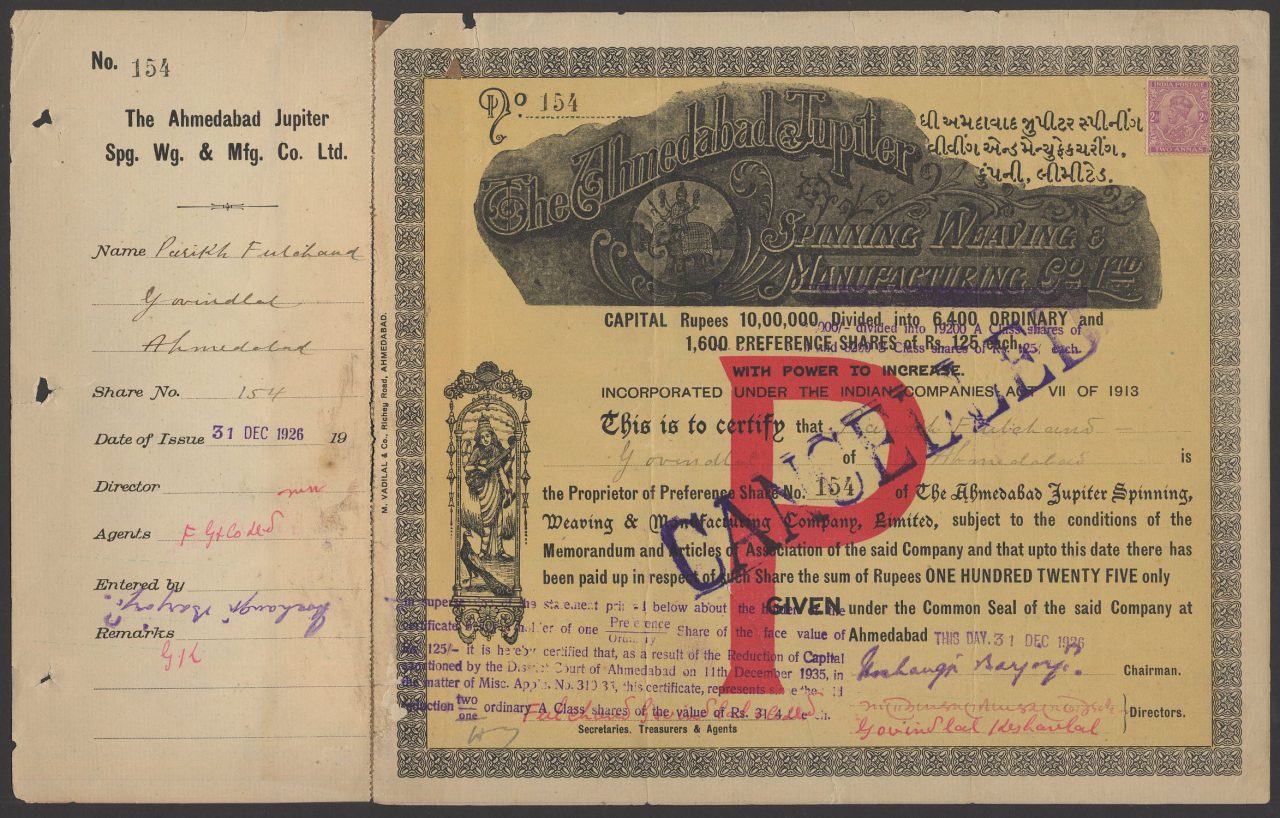 No. 154
The Ahmedabad Jupiter
Spg. Wg. & Mfg. Co. Ltd.
Name Parikh Fulchand
Govindlal
Ahmedabad
Share No. 154
Date of Issue 31 DEC 1926 19
Director
Agents
Entered by
Remarks
M. VADILAL & Co., Richey Road, AHMEDABAD.
No 154
The Ahmedabad Jupiter
SPINNING WEAVING &
MANUFACTURING CO LTD
ધી અમદાવાદ જીુપીટર સ્પીનીંગ
વીવીંગ એન્ડ મેન્યુફેકચરીંગ,
કુંપની, લીમીટેડ.
INDIA POSTAGE
2As
TWO ANNAS
CAPITAL Rupees 10,00,000, Divided into 6,400 ORDINARY and
000/- divided into 19200 A Class shares of
1,600 PREFERENCE SHARES of Rs. 125 each,
B Class shares of 125/ each.
WITH POWER TO INCREASE.
INCORPORATED UNDER THE INDIAN COMPANIES ACT VII OF 1913
This is to certify that Parikh Fulchand
Govindlal of Ahmedabad is
the Proprietor of Preference Share No. 154 of The Ahmedabad Jupiter Spinning,
Weaving & Manufacturing Company, Limited, subject to the conditions of the
Memorandum and Articles of Association of the said Company and that upto this date there has
been paid up in respect of such Share the sum of Rupees ONE HUNDRED TWENTY FIVE only
P
CANCELLED
GIVEN under the Common Seal of the said Company at
Ahmedabad THIS DAY. 31 DEC 1926
Chairman.
Directors.
Govindlal Keshavlal
the statement printed below about the holder of the
certificate being holder of one Preference Share of the face value of
Ordinary
Rs. 125/- It is hereby certified that, as a result of the Reduction of Capital
sanctioned by the District Court of Ahmedabad on 11th December 1935, in
the matter of Misc. Appln. No. 310 35, this certificate, represents since the said
reduction two ordinary A Class shares of the value of Rs. 31-4 each.
one
Fulchand Govindlal
Secretaries. Treasurers & Agents